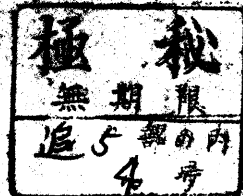 極秘
無期限
追 5 部の内
4 号